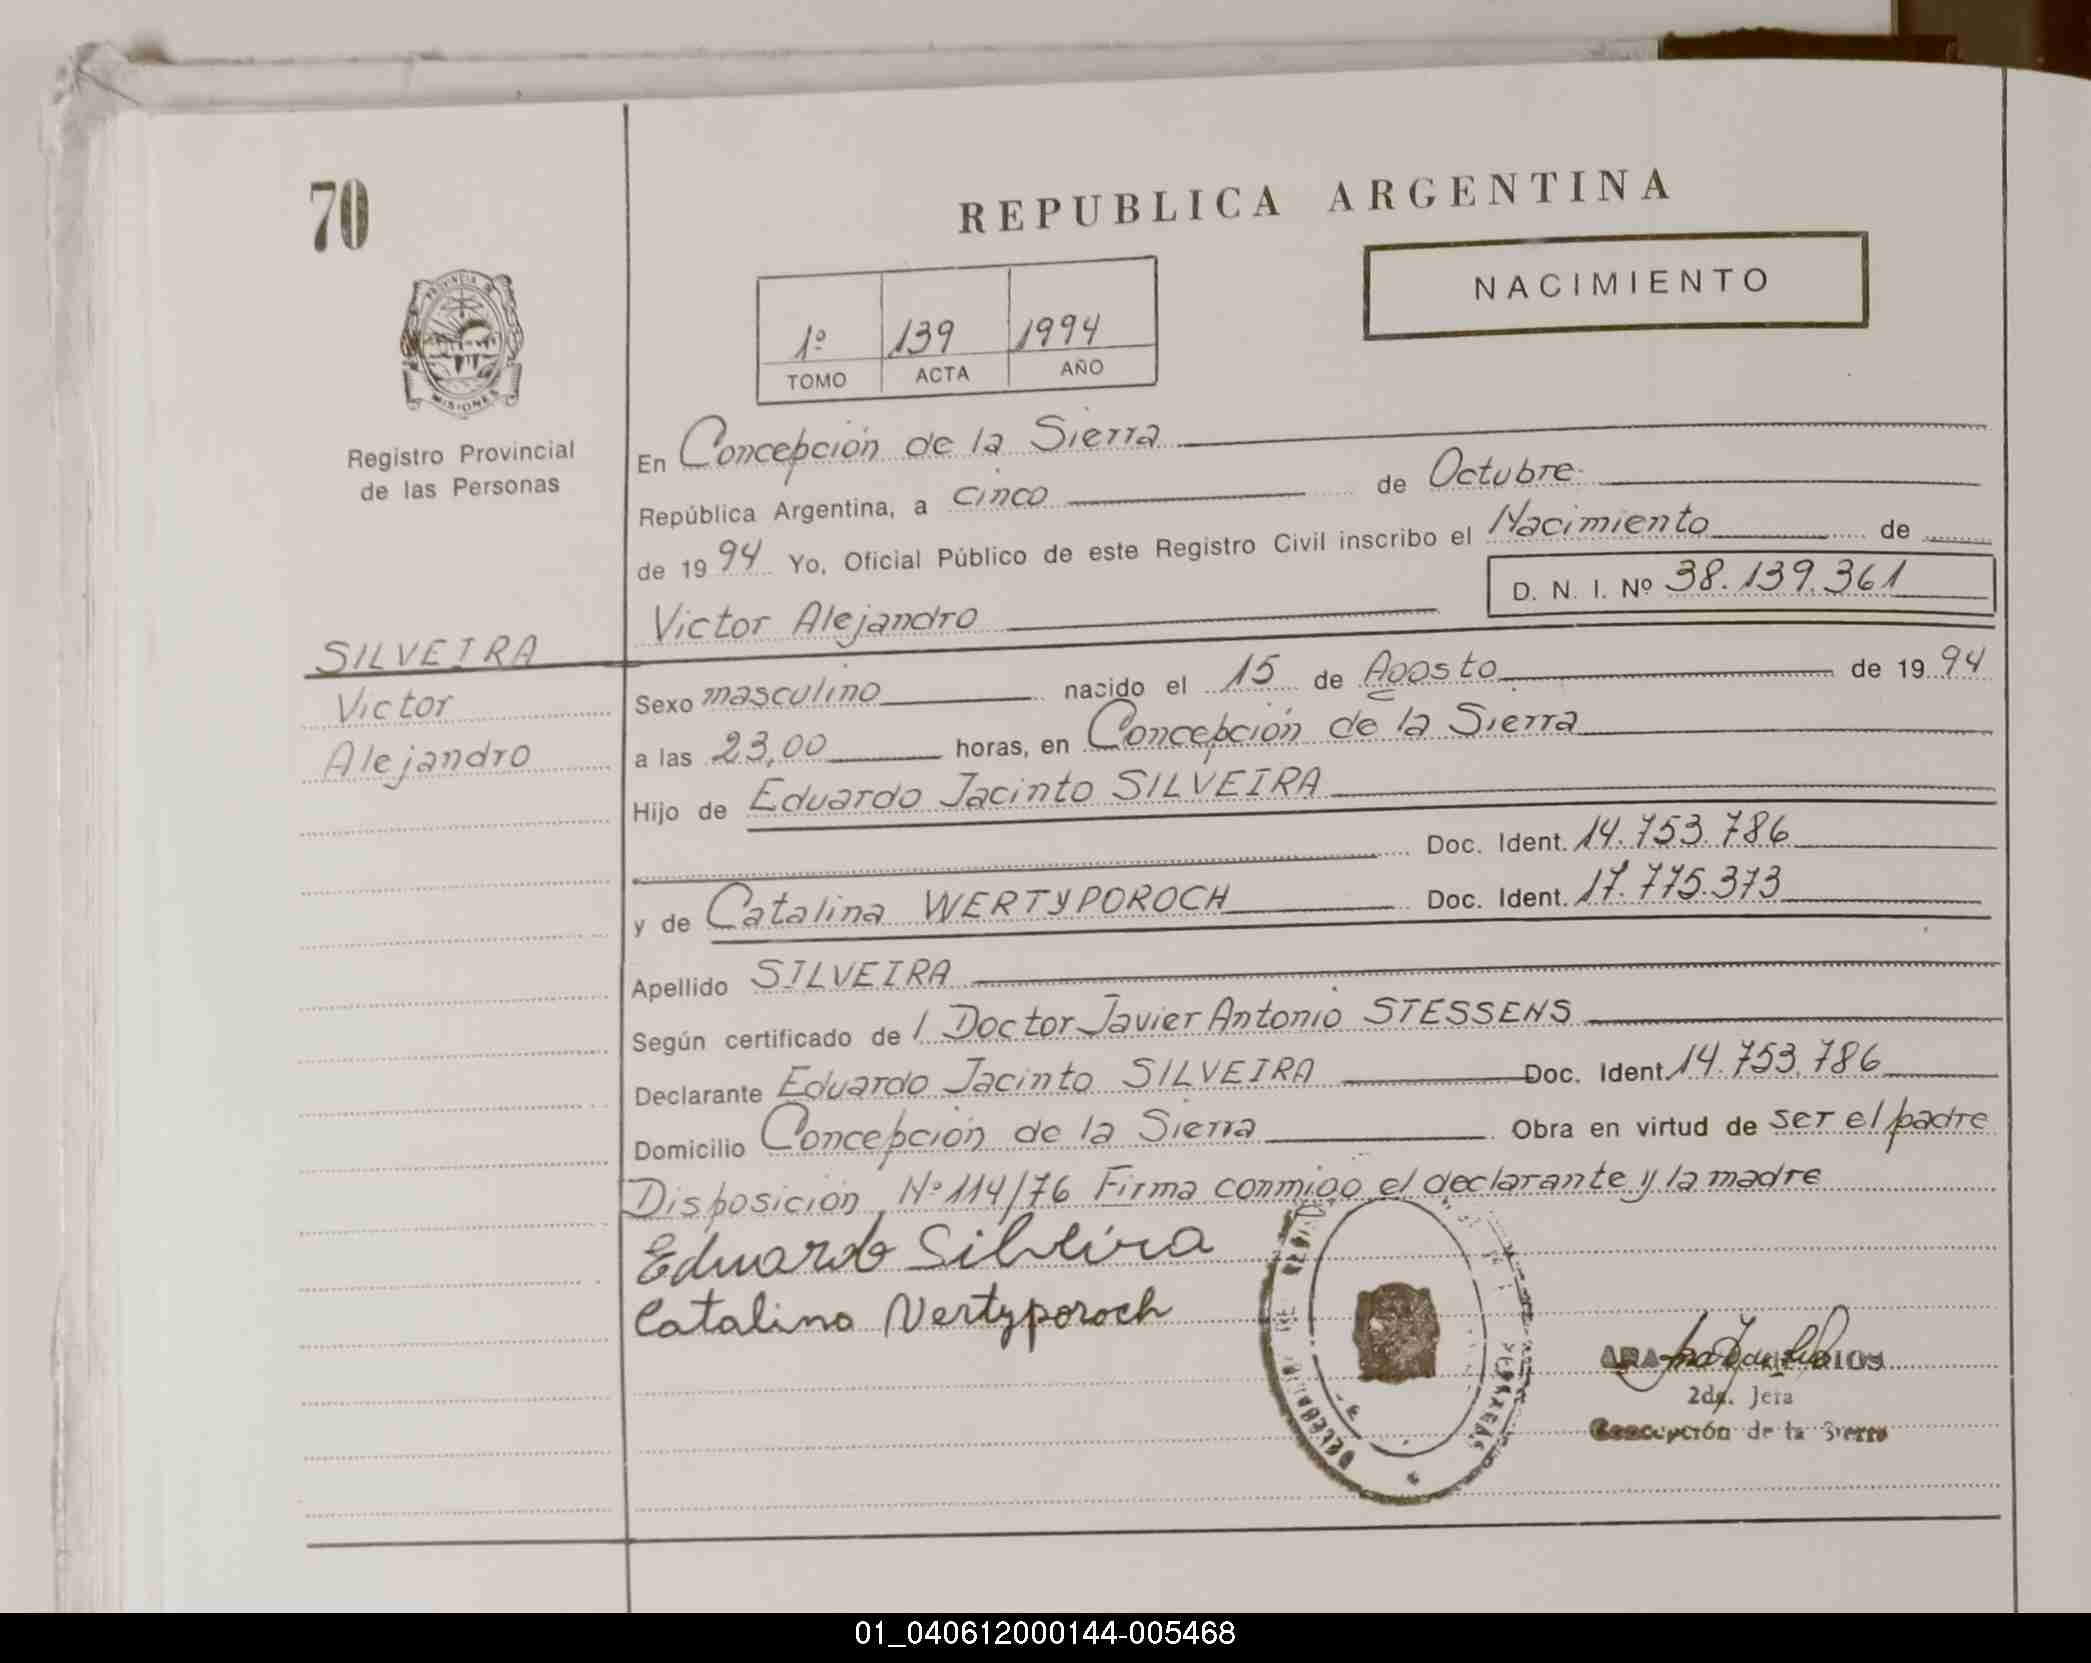 70
REPUBLICA ARGENTINA
NACIMIENTO
1º 139 1994
TOMO ACTA AÑO
PROVINCIA DE
MISIONES
Registro Provincial
de las Personas
En Concepción de la Sierra
República Argentina, a cinco de Octubre
de 1994 Yo, Oficial Público de este Registro Civil inscribo el Nacimiento de
D. N. I. Nº 38.139.361
Victor Alejandro
SILVEIRA
Victor
Alejandro
Sexo masculino nacido el 15 de Agosto de 1994
a las 23,00 horas, en Concepción de la Sierra
Hijo de Eduardo Jacinto SILVEIRA
Doc. Ident. 14.753.786
y de Catalina WERTYPOROCH Doc. Ident. 17.775.373
Apellido SILVEIRA
Según certificado de l Doctor Javier Antonio STESSENS
Declarante Eduardo Jacinto SILVEIRA Doc. Ident. 14.753.786
Domicilio Concepción de la Sierra Obra en virtud de ser el padre
Disposición Nº 114/76 Firma conmigo el declarante y la madre
Eduardo Silveira
Catalina Wertyporoch
2da. Jefa
Concepción de la Sierra
01_040612000144-005468